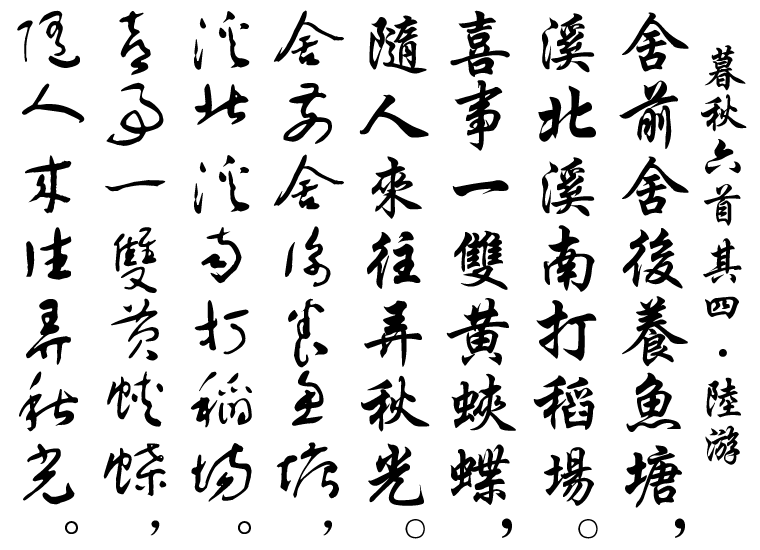 暮秋六首其四·陸游
舍前舍後養魚塘，
溪北溪南打稻場。
喜事一雙黃蛺蝶，
隨人來往弄秋光。
舍前舍後養魚塘，
溪北溪南打稻場。
喜事一雙黃蛺蝶，
隨人來往弄秋光。